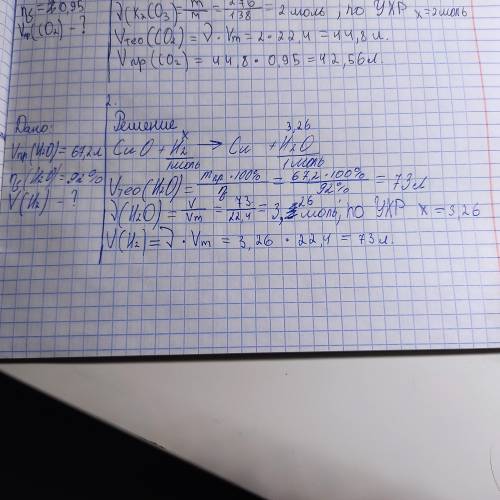 η = 0,95
Vm(CO2) - ?
ν(K2CO3) = m/M = 276/138 = 2 моль, по УХР x = 2 моль
Vтео(CO2) = ν · Vm = 2 · 22,4 = 44,8 л.
Vпр(CO2) = 44,8 · 0,95 = 42,56 л.
2.
Дано:
Vпр(H2O) = 67,2 л
η(H2O) = 92%
V(H2) ?
Решение
x 3,26
CuO + H2 → Cu + H2O
1моль 1моль
Vтео(H2O) = mпр · 100% / η = 67,2 · 100% / 92% = 73 л
ν(H2O) = V/Vm = 73/22,4 = 3,26 моль, по УХР x = 3,26
V(H2) = ν · Vm = 3,26 · 22,4 = 73 л.